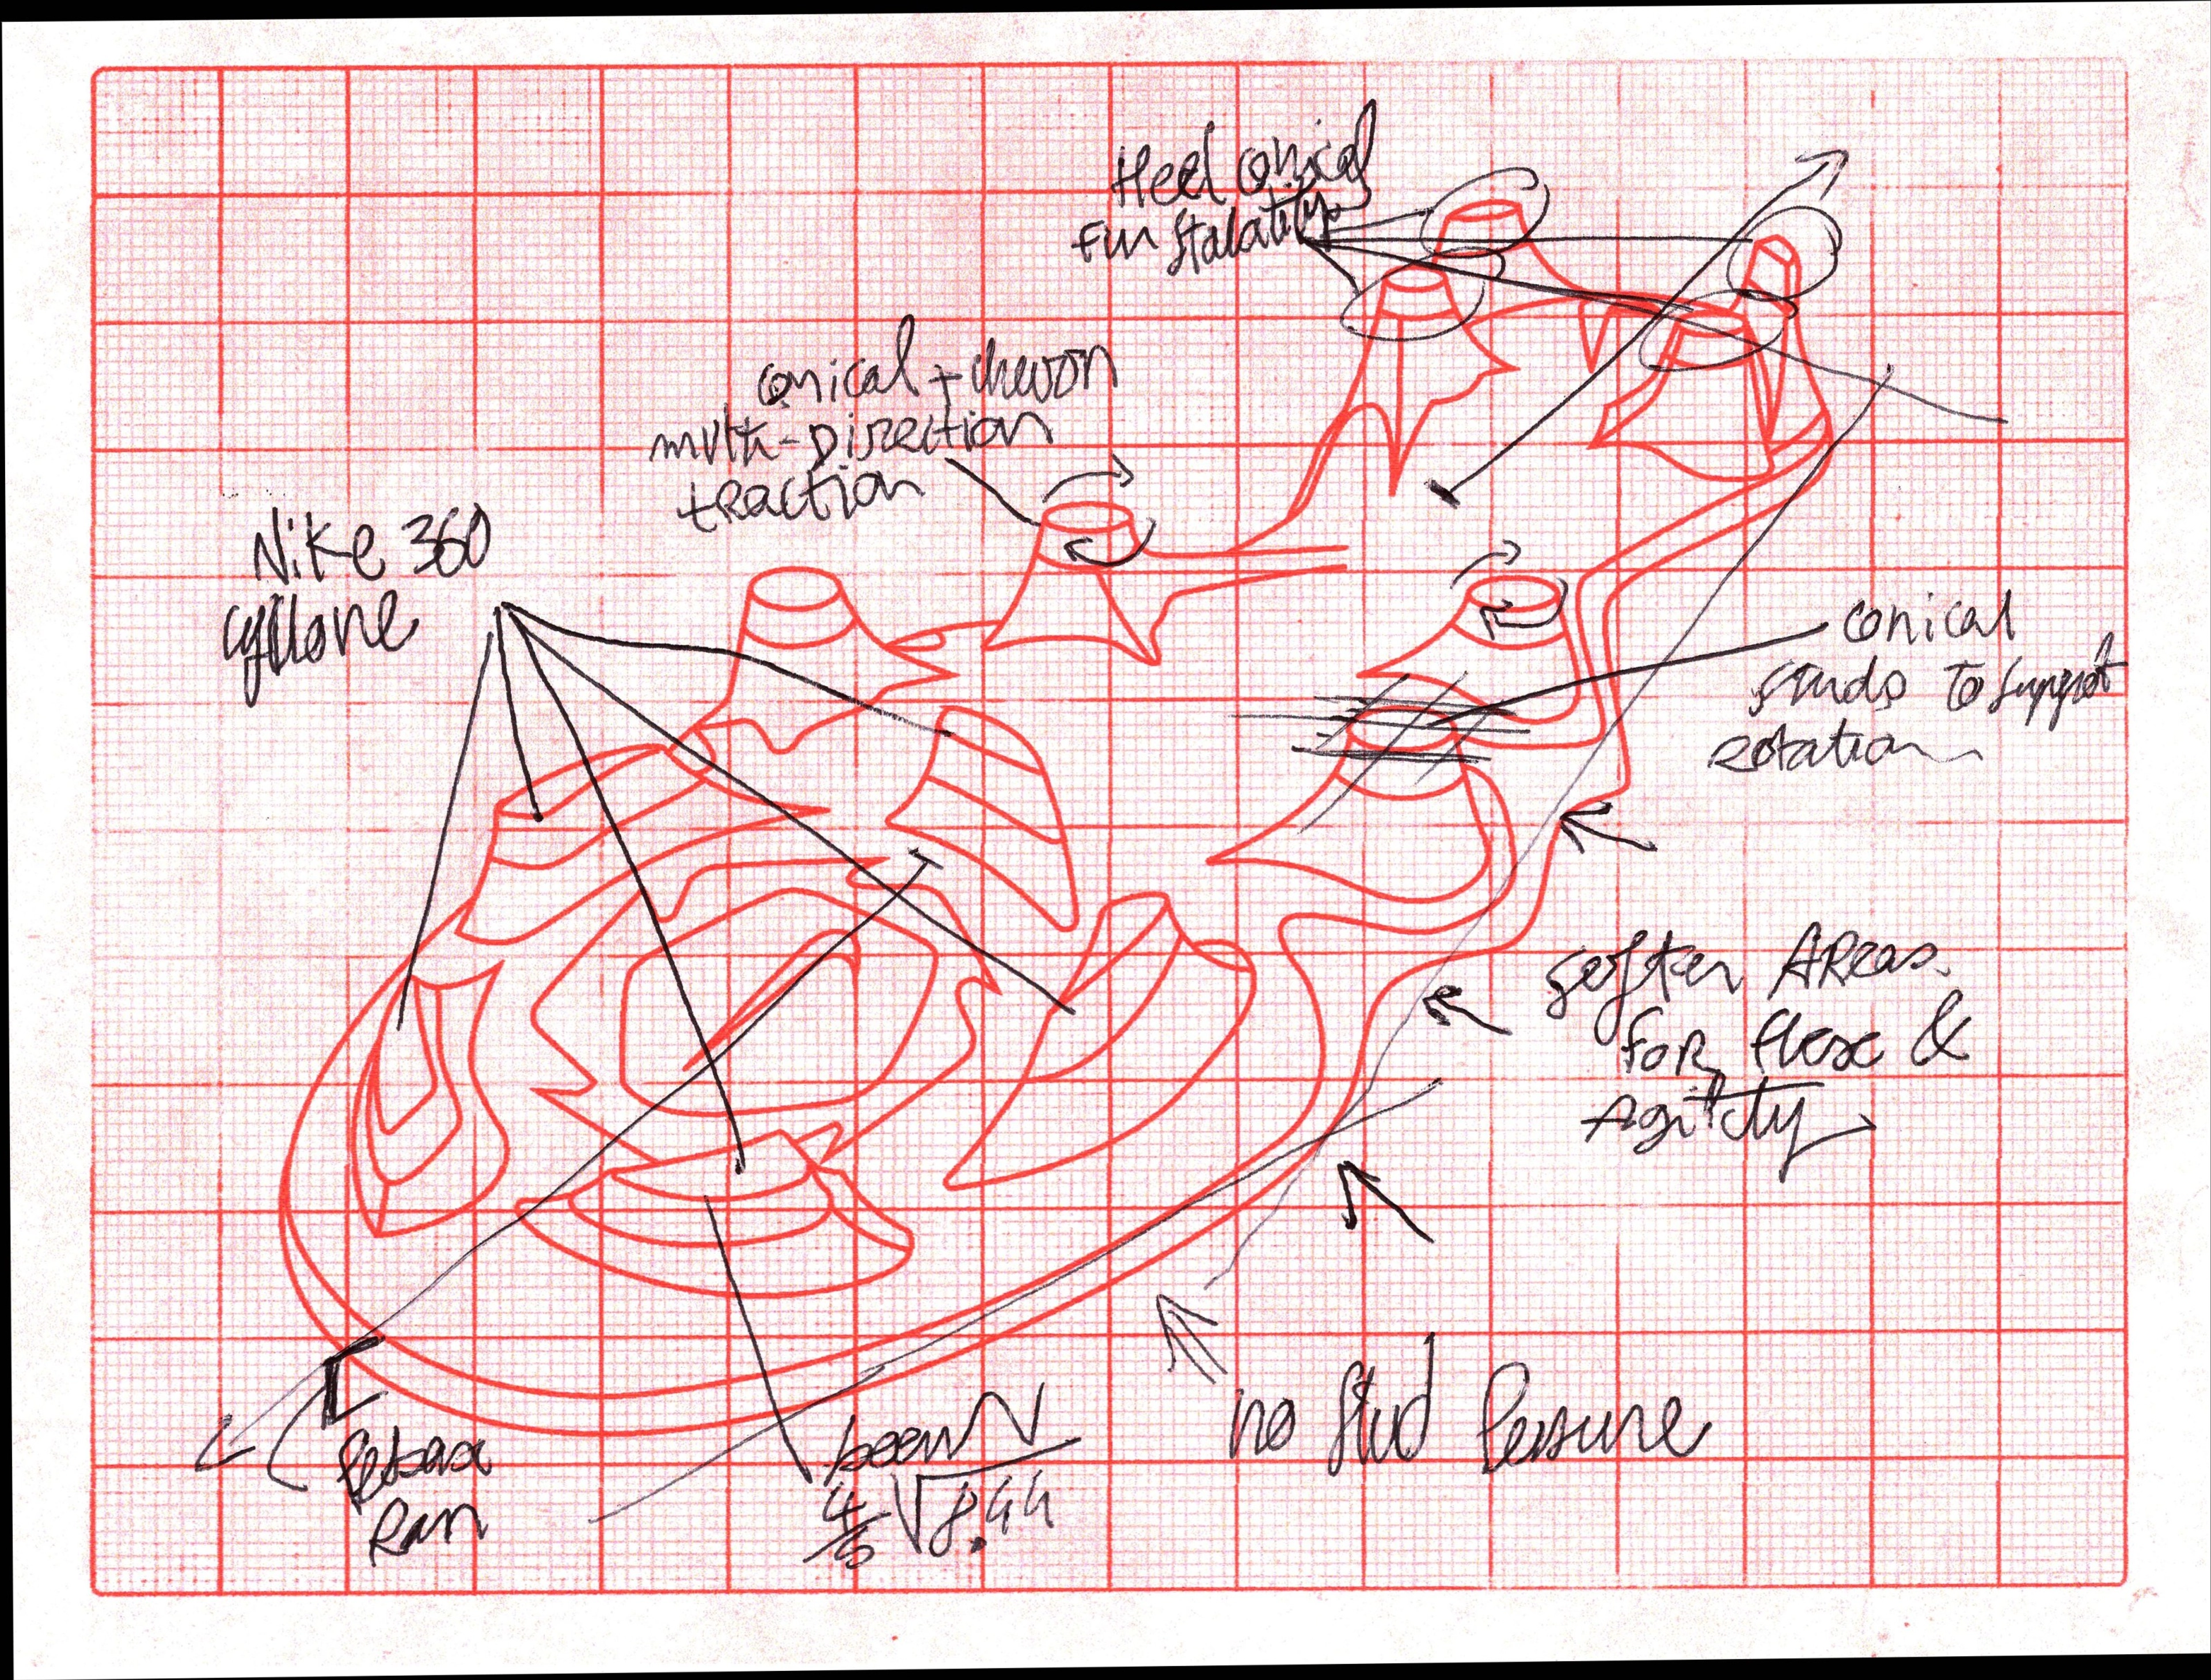 Heel conical
conical + chevron
multi-Direction
traction
Nike 360
cyklone
conical
studs to support
rotation
softer Areas
for flex &
Agility
no stud Pessure
4/5 √8.44